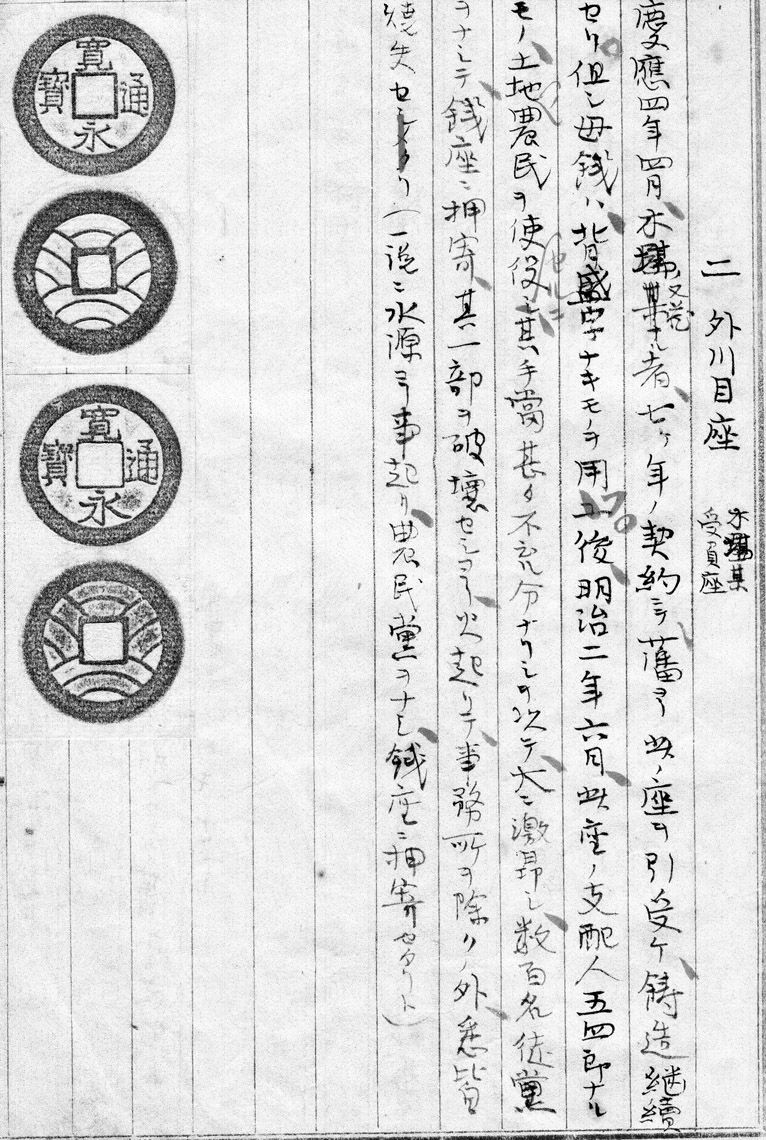 二 外川目座
水 某
受負座
慶應四年四月水 ナル者七ヶ年ノ契約ニテ舊ヨリ此ノ座ヲ引受ケ鋳造継續
セリ但シ母銭ハ背盛字ナキモノヲ用 後明治二年六月此座ノ支配人五四郎ナル
モノ土地農民ヲ使役シ其手當甚タ不充分ナリシヲ以テ大ニ激昂シ数百名徒黨
ヲナシテ銭座ニ押寄其一部ヲ破壊セシヨリ火起リテ事務所ヲ除クノ外悉皆
焼失セシメタリ(一説ニ水原ヨリ事起リ農民黨ヲナシ銭座ニ押寄セタリト)
寛永通寳
寛永通寳